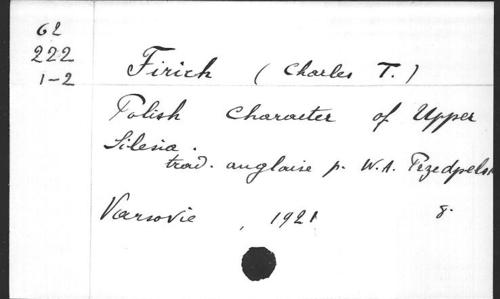 62
222
1-2
Firich (Charles T.)
Polish Character of Upper
Silesia.
trad. anglaise p. W.A.
Varsovie, 1921 8.